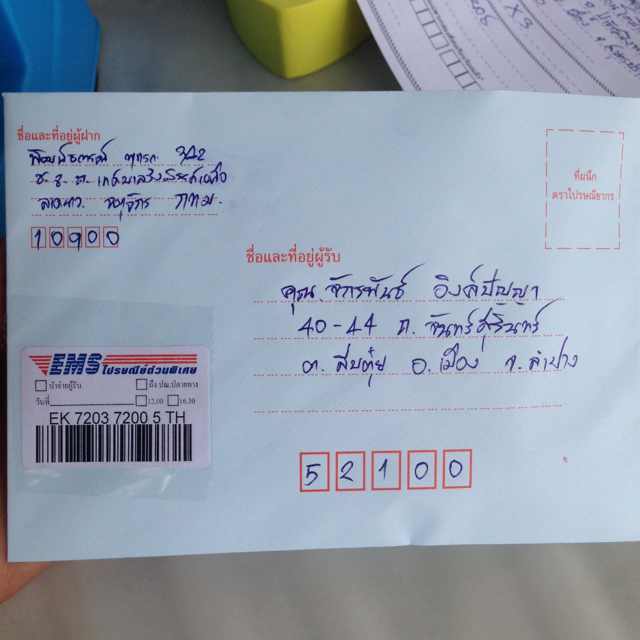 ชื่อและที่อยู่ผู้ฝาก
342
ลาดยาว จตุจักร กทม.
10900
ที่ผนึก
ตราไปรษณียากร
ชื่อและที่อยู่ผู้รับ
คุณ จักรพันธ์ อิงค์ปัญญา
40-44 ถ. จันทร์สุรินทร์
ต. สบตุ๋ย อ. เมือง จ. ลำปาง
52100
EMS ไปรษณีย์ด่วนพิเศษ
นำจ่ายผู้รับ ถึง ปณ.ปลายทาง
วันที่ 12.00 16.30
EK 7203 7200 5 TH